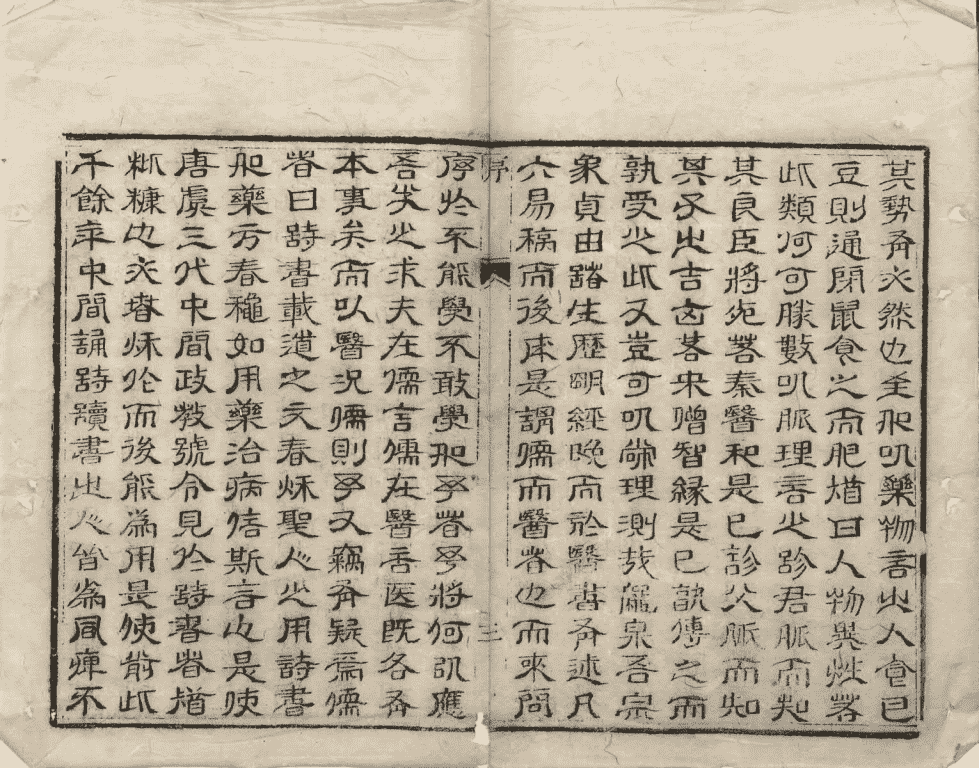 其勢有必然也至於以藥物言之人食巴
豆則通閉鼠食之而肥猶曰人物異性若
此類何可勝數以脈理言之診君脈而知
其良臣將死若秦醫和是已診父脈而知
其子之吉凶若宋贈智緣是已孰傳之而
孰受之此又豈可以常理測哉儷泉吾宗
象貞由諸生歷明經晚而於醫書有述凡
六易稿而後成是謂儒而醫者也而來問
序 三
序於不能學不敢學於予者予將何以應
吾失之求夫在儒言儒在醫言医既各有
本事矣而以醫況儒則予又竊有疑焉儒
者曰詩書載道之文春秋聖人之用詩書
如藥方春秋如用藥治病信斯言也是使
唐虞三代中間政教號令見於詩書者猶
粃糠也必春秋作而後能為用是使前此
千餘年中間誦詩讀書之人皆為同癉不